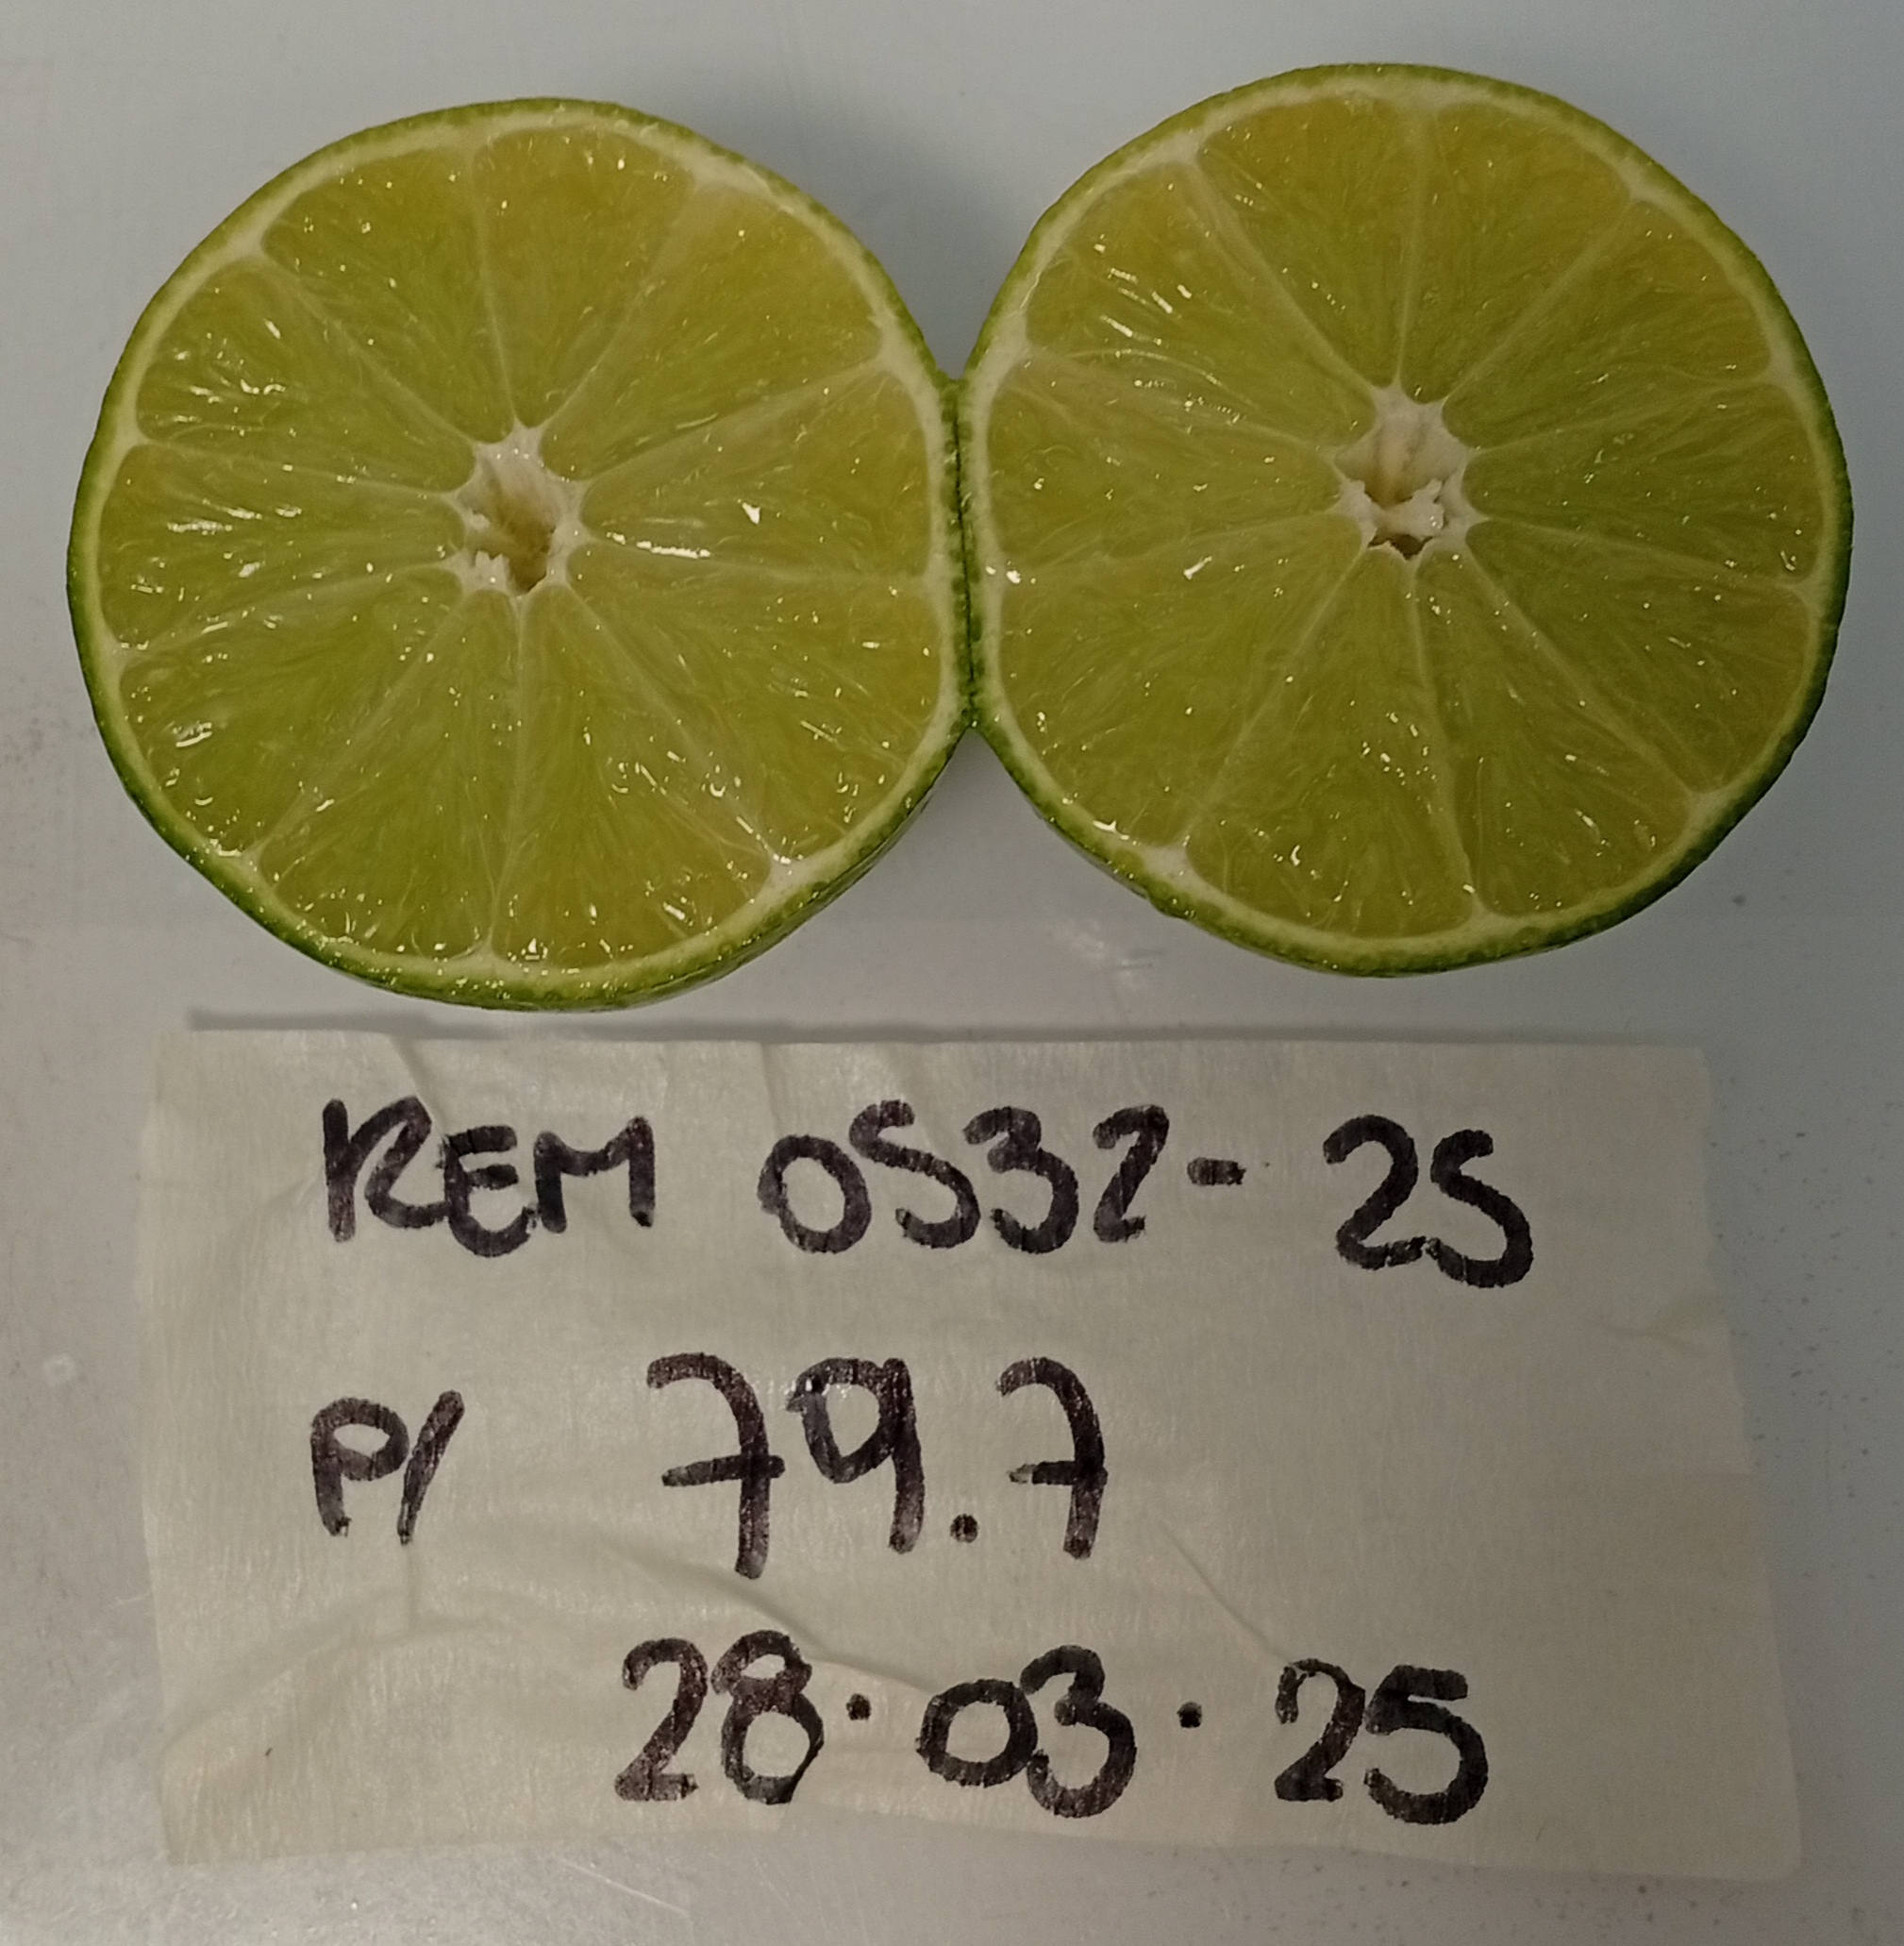 REM 0532- 25
P/ 79.7
28.03.25